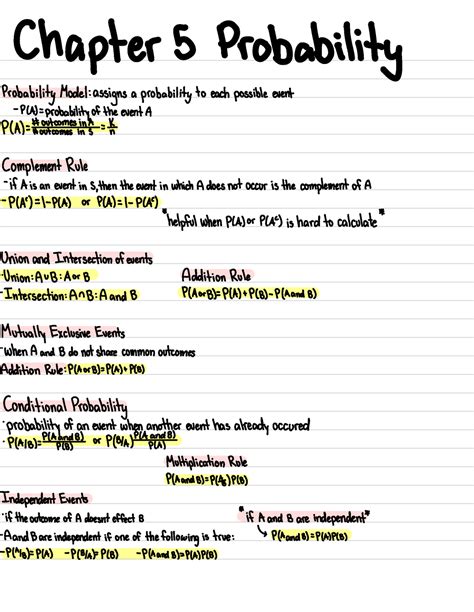 Chapter 5 Probability
Probability Model: assigns a probability to each possible event
-P(A)=probability of the event A
P(A)=# outcomes in A/# outcomes in S=K/n
Complement Rule
-if A is an event in S, then the event in which A does not occur is the complement of A
-P(Aᶜ)=1-P(A) or P(A)=1-P(Aᶜ)
*helpful when P(A) or P(Aᶜ) is hard to calculate*
Union and Intersection of events
-Union: A∪B: A or B
Addition Rule
-Intersection: A∩B: A and B
P(A or B)=P(A)+P(B)-P(A and B)
Mutually Exclusive Events
-when A and B do not share common outcomes
Addition Rule: P(A or B)=P(A)+P(B)
Conditional Probability
·probability of an event when another event has already occured
·P(A/B)=P(A and B)/P(B) or P(B/A)P(A and B)/P(A)
Multiplication Rule
P(A and B)=P(A/B)P(B)
Independent Events
·if the outcome of A doesnt effect B
*if A and B are independent*
-A and B are independent if one of the following is true:
↳ P(A and B)=P(A)P(B)
-P(A/B)=P(A) -P(B/A)=P(B) -P(A and B)=P(A)P(B)